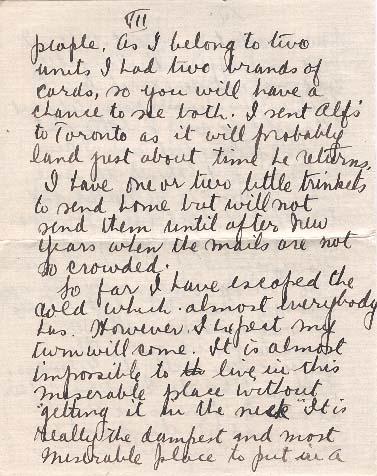 VII
people. As I belong to two
units I had two brands of
cards, so you will have a
chance to see both. I sent Alf's
to Toronto as it will probably
land just about time he returns.
I have one or two little trinkets
to send home but will not
send them until after New
Years when the mails are not
so crowded.
So far I have escaped the
cold which almost everybody
has. However I expect my
turn will come. It is almost
impossible to live in this
miserable place without
"getting it in the neck" It is
really the dampest and most
miserable place to put in a